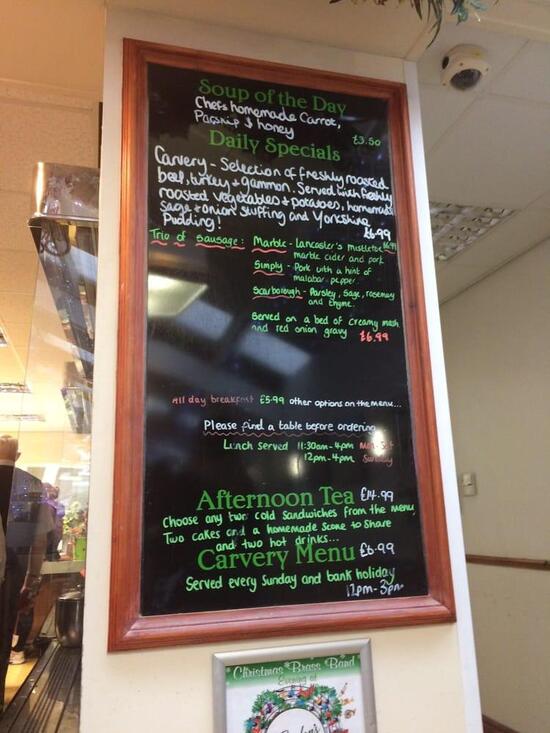 Soup of the Day
Chefs homemade Carrot,
Parsnip & honey
£3.50
Daily Specials
Carvery - Selection of freshly roasted
beef, turkey + gammon. Served with freshly
roasted vegetables + potatoes, homemade
sage + onion stuffing and Yorkshire
Pudding!
£6.99
Trio of Sausage: Marble - Lancaster's mistletoe £6.99
marble cider and pork
Simply - Pork with a hint of
malabar pepper.
Scarborough - Parsley, Sage, rosemary
and thyme.
Served on a bed of creamy mash
and red onion gravy £6.99
All day breakfast £5.99 other options on the menu...
Please find a table before ordering
Lunch served 11:30am - 4pm Mon - Sat
12pm - 4pm Sunday
Afternoon Tea £14.99
Choose any two cold Sandwiches from the menu,
Two cakes and a homemade Scone to Share
and two hot drinks...
Carvery Menu £6.99
Served every Sunday and bank holiday
12pm - 3pm
Christmas Brass Band
Evening at